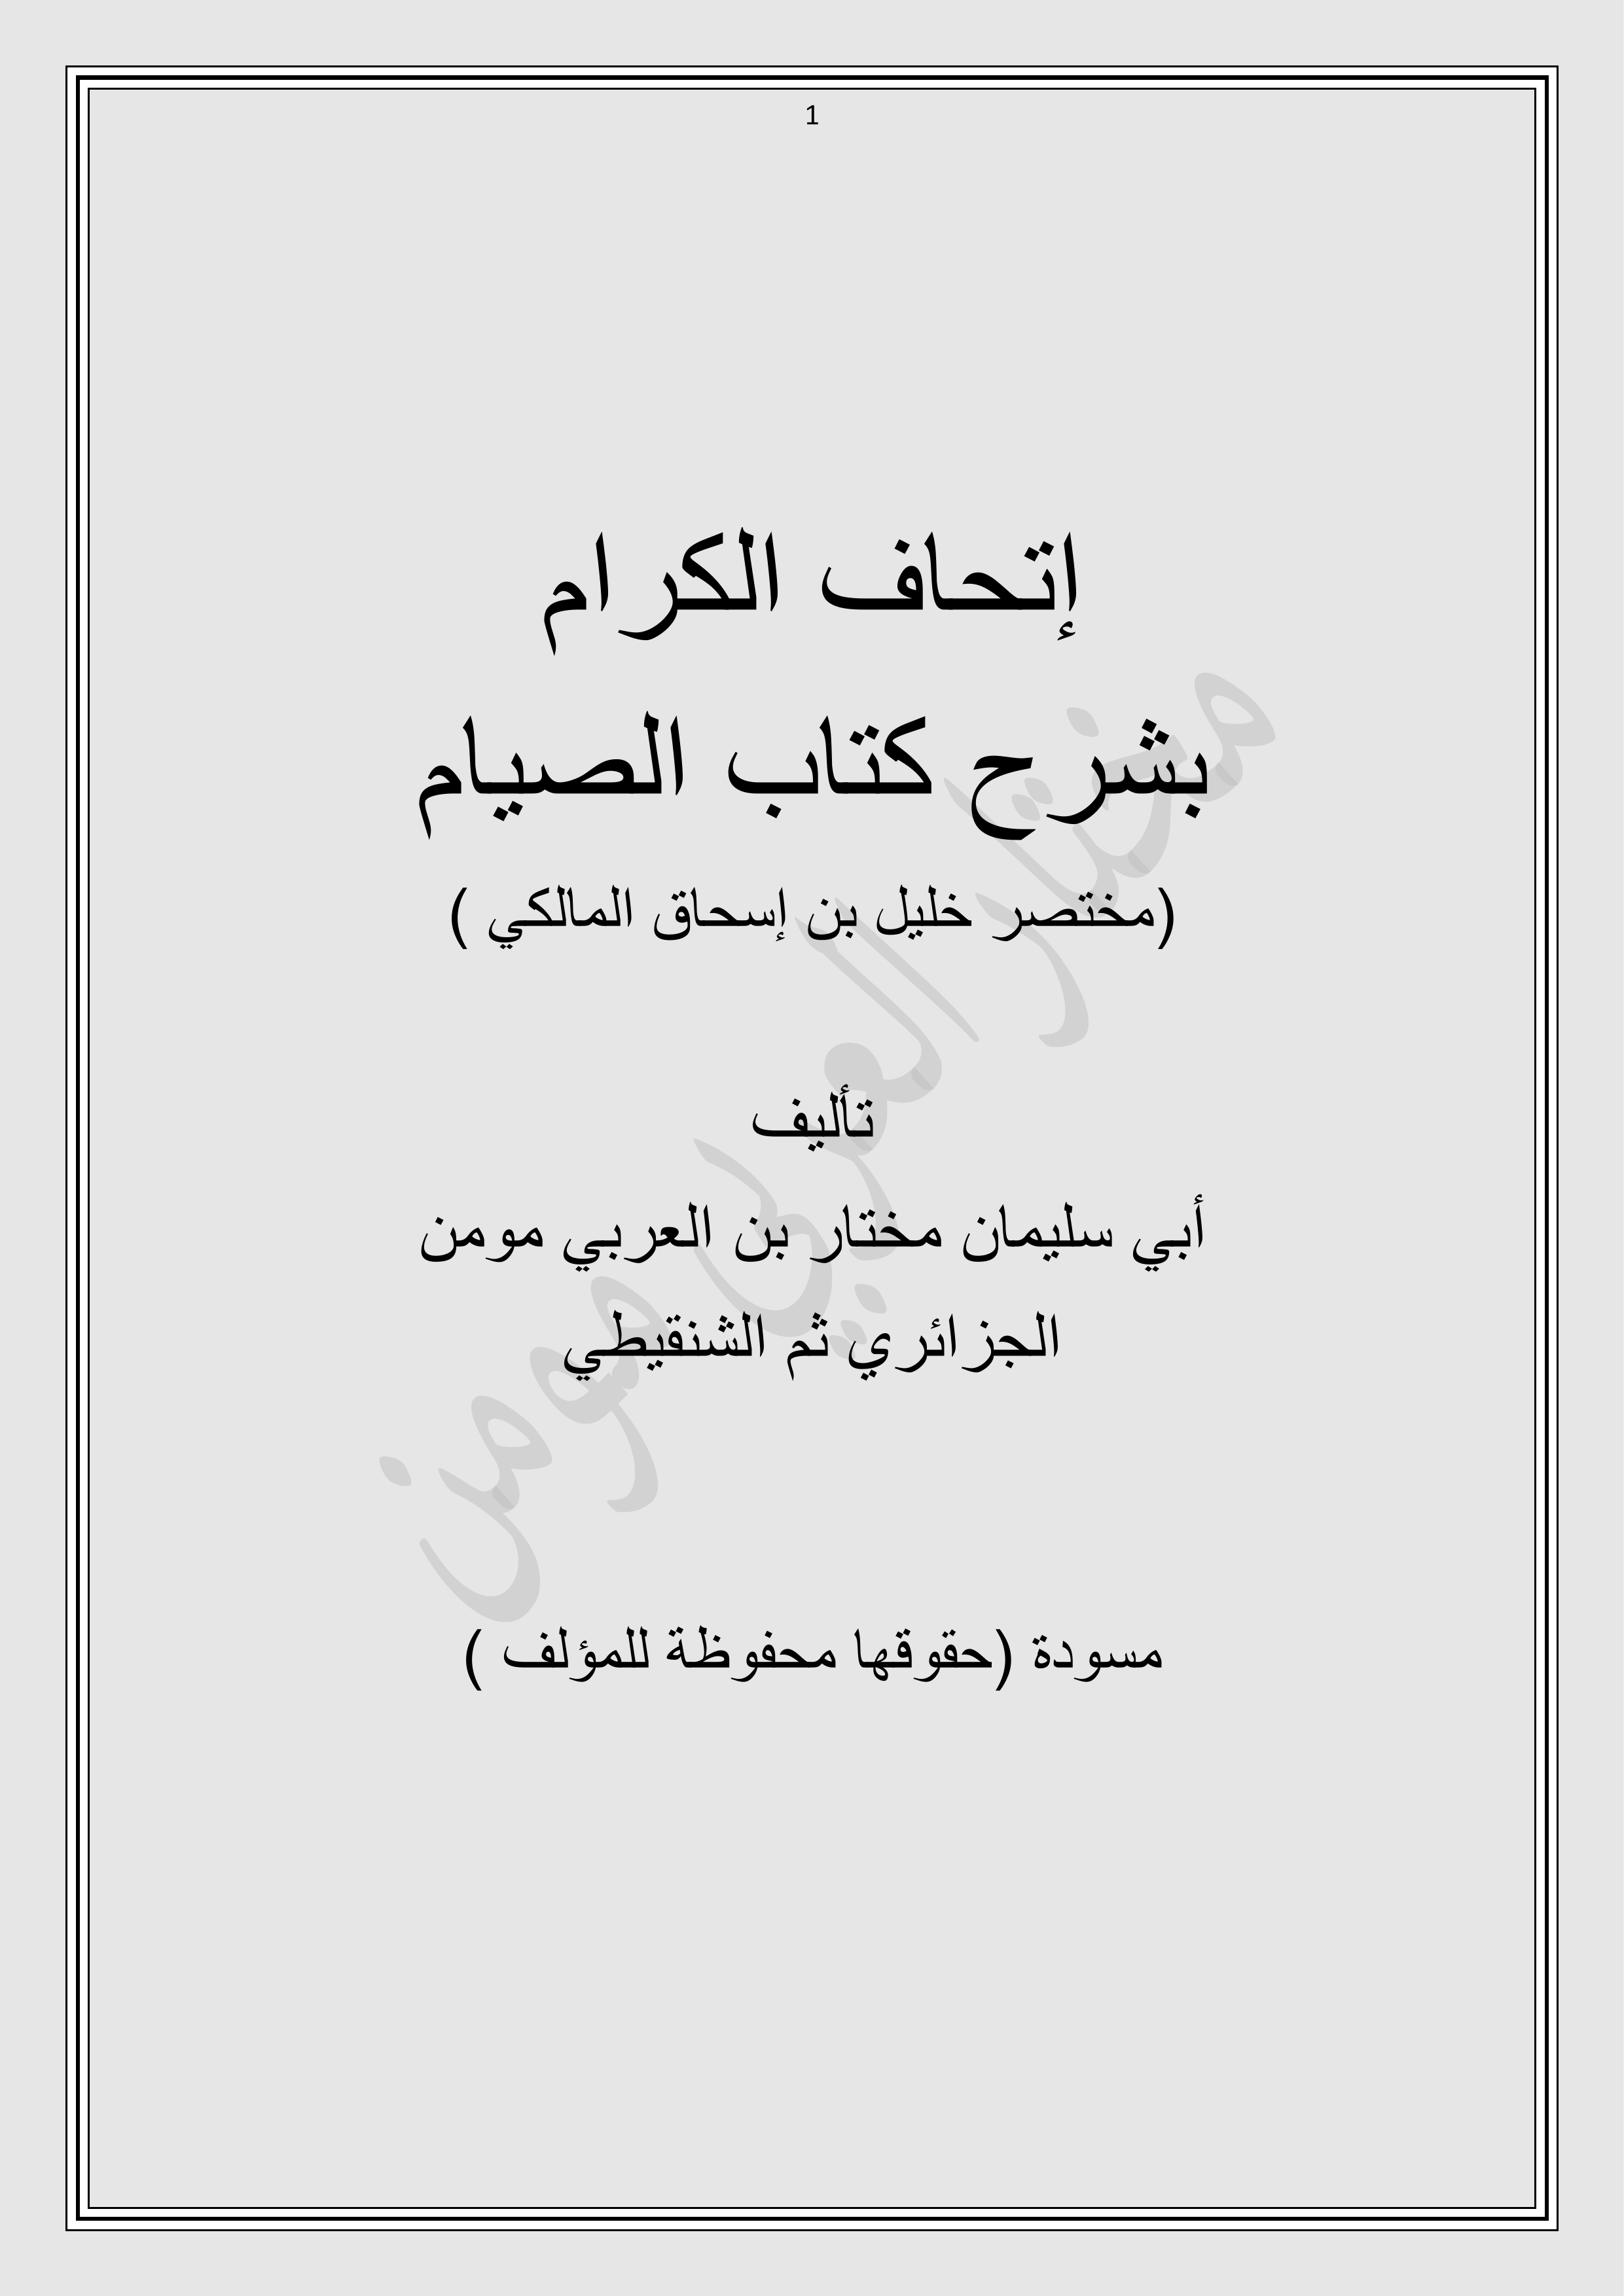 1
إتحاف الكرام
بشرح كتاب الصيام
(مختصر خليل بن إسحاق المالكي )
تأليف
أبي سليمان مختار بن العربي مومن
الجزائري ثم الشنقيطي
مسودة (حقوقها محفوظة للمؤلف )
مختار العربي مومن